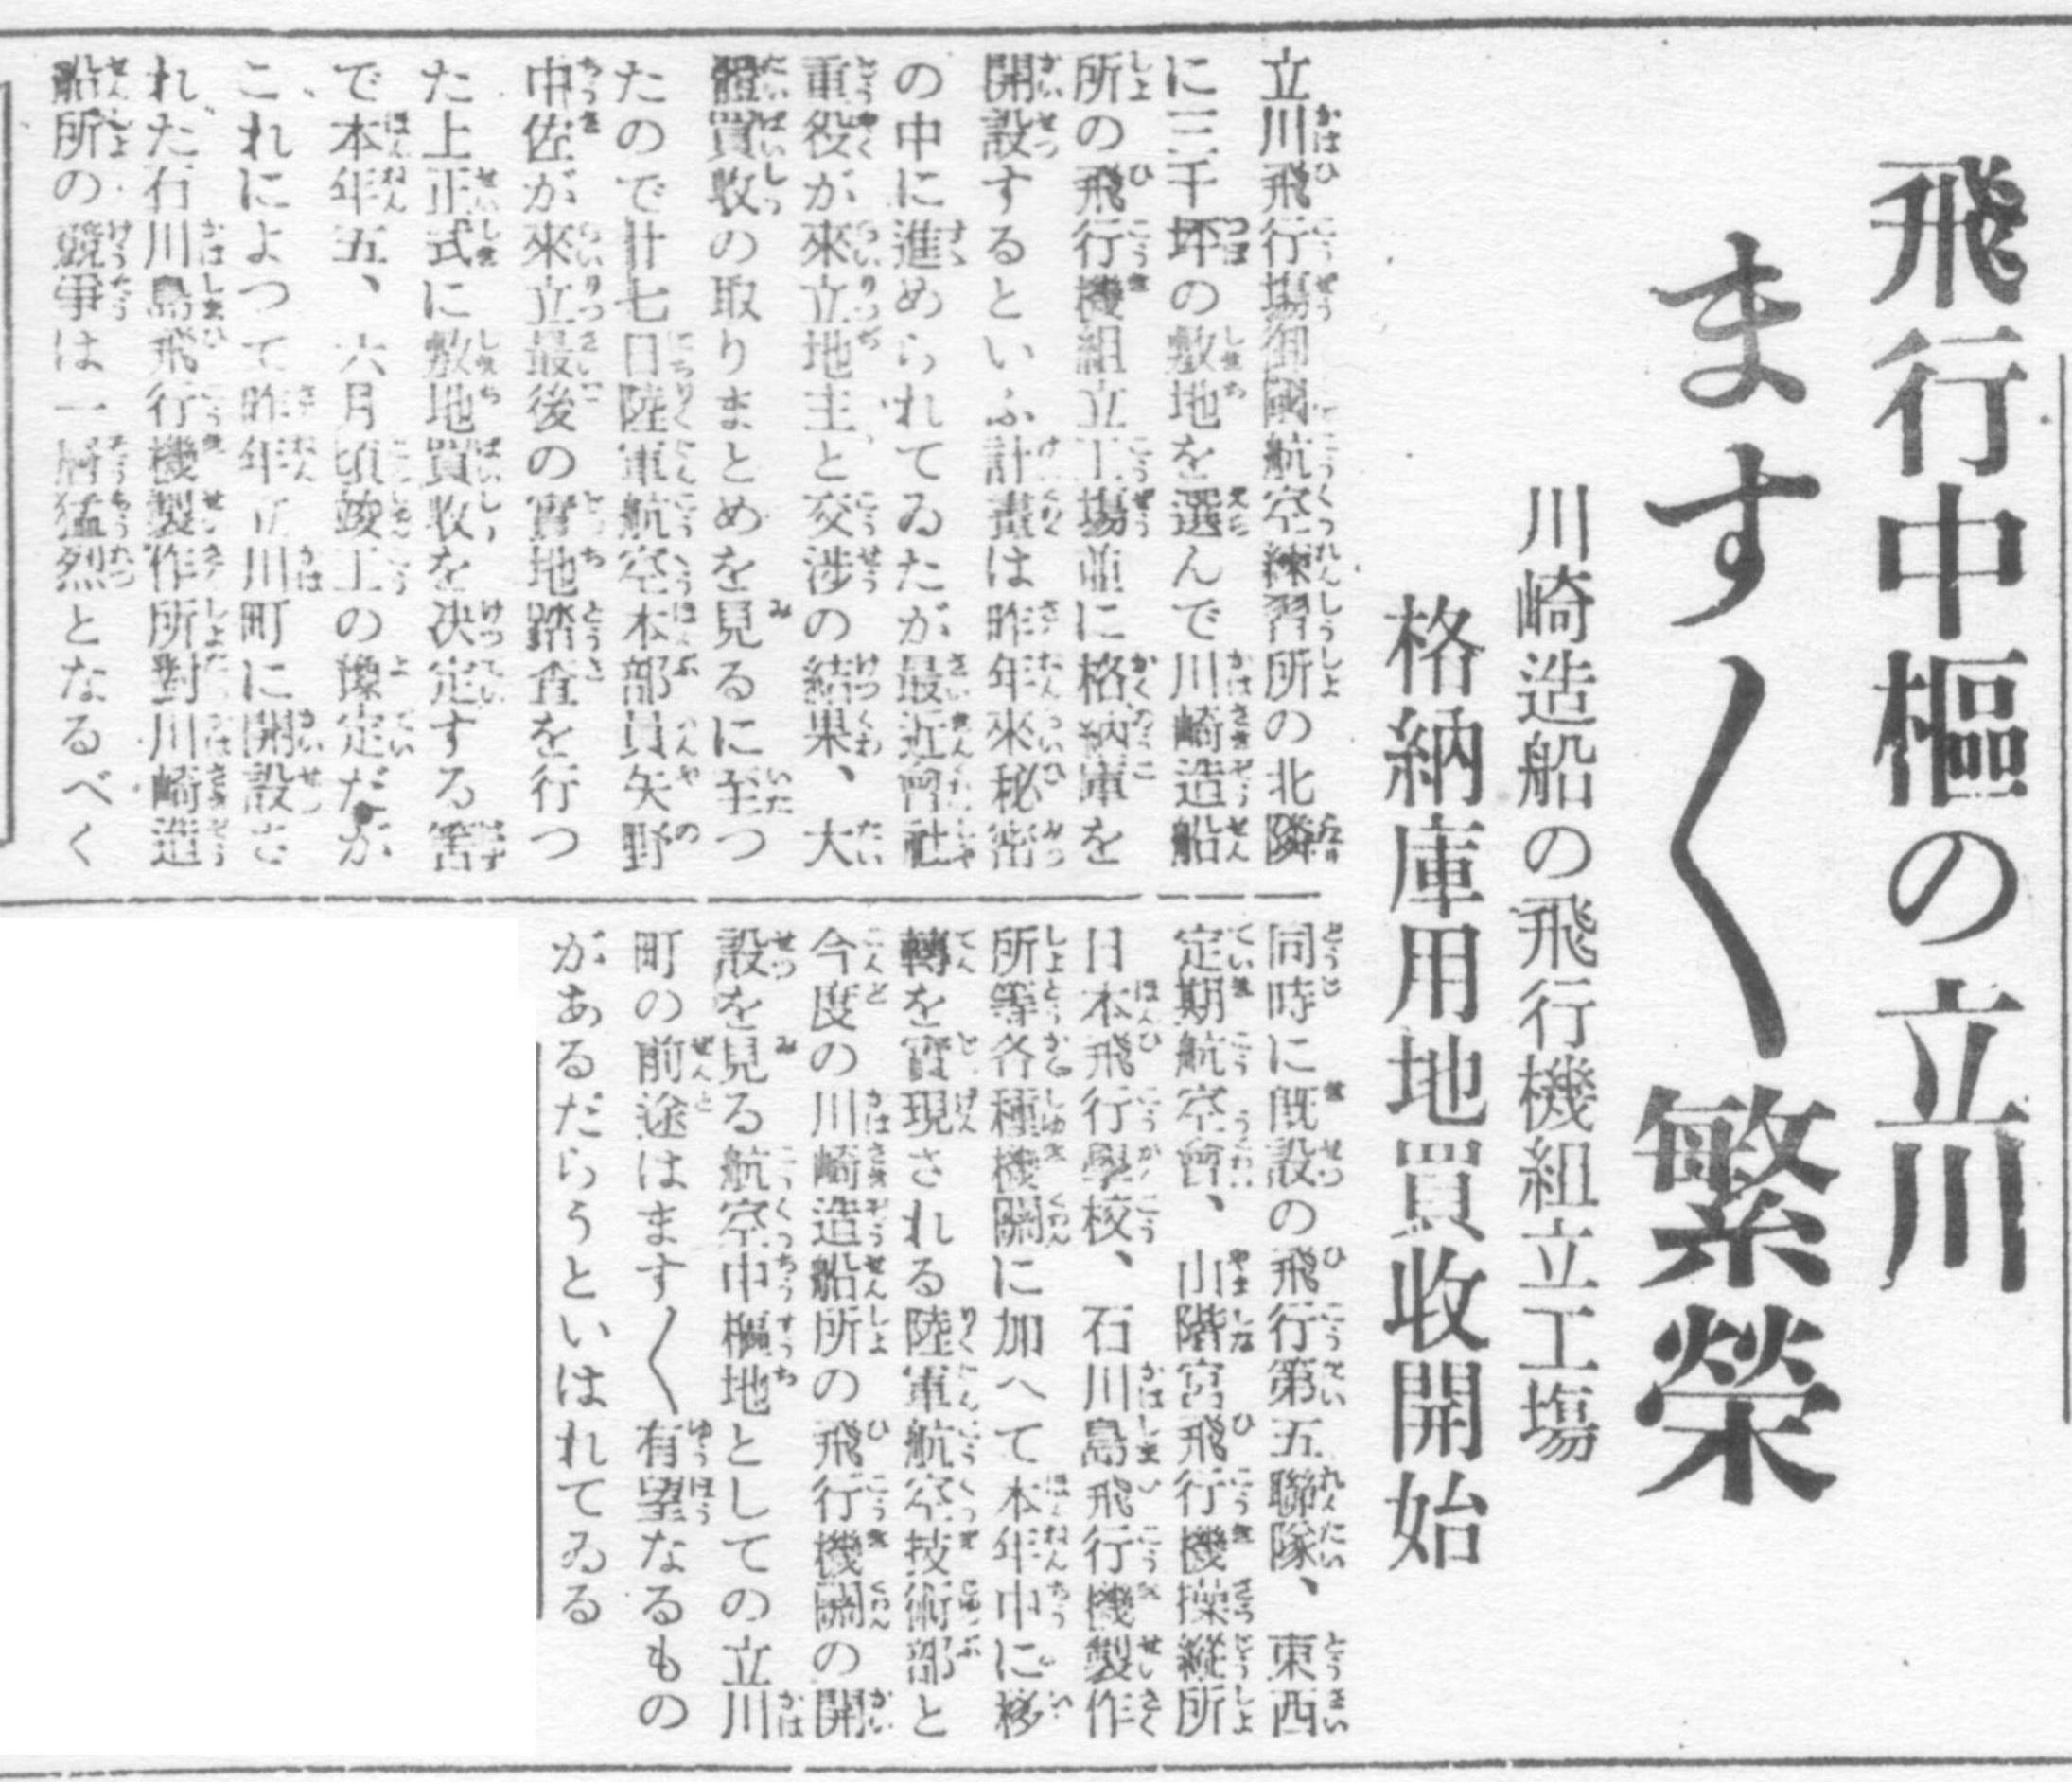 飛行中樞の立川
ます〱繁榮
川崎造船の飛行機組立工塲
格納庫用地買收開始
立川飛行塲御國航空練習所の北隣
に三千坪の敷地を選んで川崎造船
所の飛行機組立工塲並に格納庫を
開設するといふ計畫は昨年來秘密
の中に進められてゐたが最近會社
重役が來立地主と交渉の結果、大
體買收の取りまとめを見るに至つ
たので廿七日陸軍航空本部員矢野
中佐が來立最後の實地踏査を行つ
た上正式に敷地買收を決定する筈
で本年五、六月頃竣工の豫定だが
これによつて昨年立川町に開設さ
れた石川島飛行機製作所對川崎造
船所の競爭は一層猛烈となるべく
同時に既設の飛行第五聯隊、東西
定期航空會、山階宮飛行機操縱所
日本飛行學校、石川島飛行機製作
所等各種機關に加へて本年中に移
轉を實現される陸軍航空技術部と
今度の川崎造船所の飛行機關の開
設を見る航空中樞地としての立川
町の前途はます〱有望なるもの
があるだらうといはれてゐる